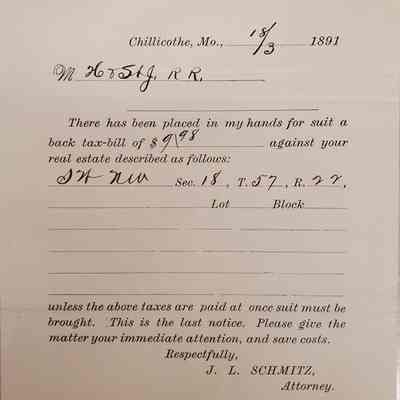 Chillicothe, Mo., 18/3 1891
M H & St J. R R.
There has been placed in my hands for suit a
back tax-bill of $ 9.98 against your
real estate described as follows:
SW NW Sec. 18, T. 57, R. 22,
Lot Block
unless the above taxes are paid at once suit must be
brought. This is the last notice. Please give the
matter your immediate attention, and save costs.
Respectfully,
J. L. SCHMITZ,
Attorney.